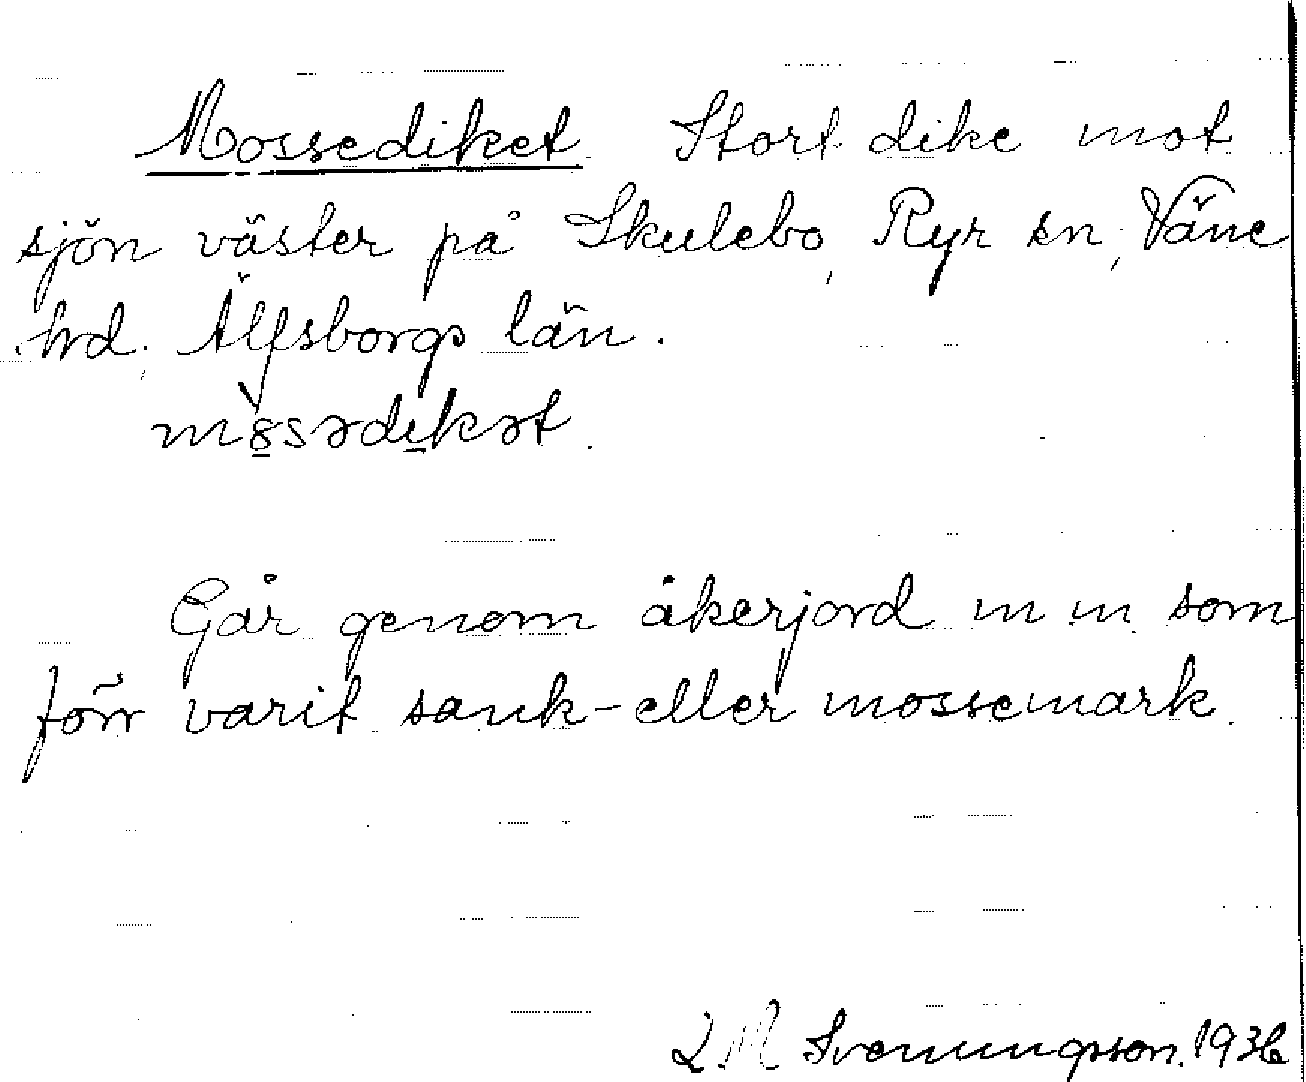 Mossediket Stort dike mot
sjön väster på Skulebo, Ryr sn, Väne
hrd, Älfsborgs län.
Går genom åkerjord m m som
förr varit sank- eller mossemark.
L M Svenungsson. 1936